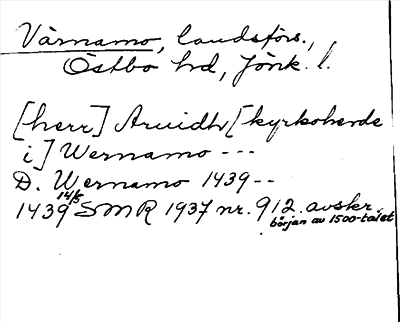 Värnamo, landsförs.,
Östbo hd, Jönk. l.
[herr] Aruidh [kyrkoherde
i] Wernamo ---
D. Wernamo 1439--
1439 14/5 SMR 1937 nr. 912. avskr.
början av 1500-talet